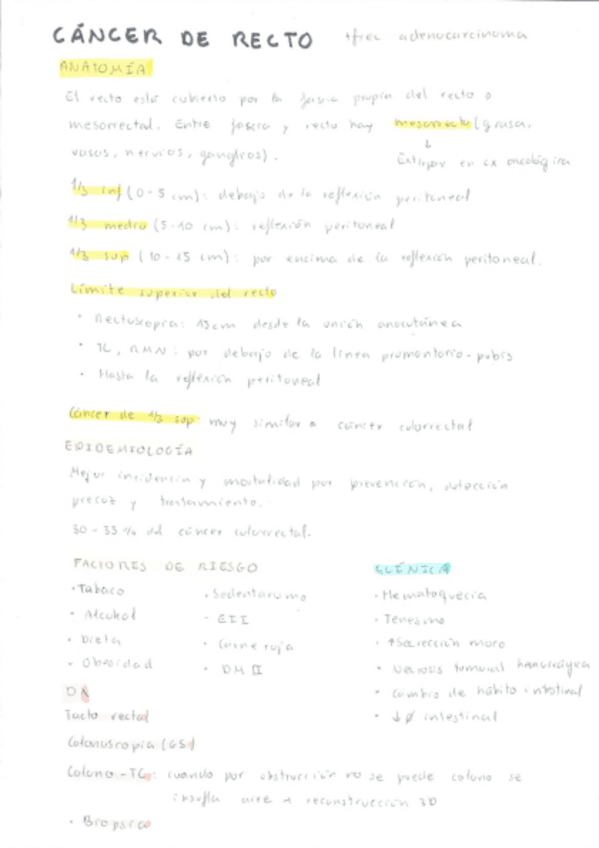 CÁNCER DE RECTO +frec adenocarcinoma
ANATOMÍA
El recto está cubierto por la fascia propia del recto o
mesorrectal. Entre fascia y recto hay mesorrecto (grasa,
vasos, nervios, ganglios).
↓
Extirpar en cx oncológica
1/3 inf (0-5 cm): debajo de la reflexión peritoneal
1/3 medio (5-10 cm): reflexión peritoneal
1/3 sup (10-15 cm): por encima de la reflexión peritoneal.
Límite superior del recto
• Rectoscopia: 15cm desde la unión anocutánea
• TC, RMN: por debajo de la línea promontorio-pubis
• Hasta la reflexión peritoneal
Cáncer de 1/3 sup muy similar a cáncer colorrectal
EPIDEMIOLOGÍA
Mejor incidencia y mortalidad por prevención, detección
precoz y tratamiento.
30-33% del cáncer colorrectal.
FACTORES DE RIESGO
• Tabaco
• Alcohol
• Dieta
• Obesidad
• Sedentarismo
• EII
• Carne roja
• DM II
CLÍNICA
• Hematoquecia
• Tenesmo
• ↑Secreción moco
• Necrosis tumoral hemorrágica
• Cambio de hábito intestinal
• ↓Ø intestinal
DX
Tacto rectal
Colonoscopia (GS)
Colono-TC: cuando por obstrucción no se puede colono se
insufla aire → reconstrucción 3D
• Biopsia